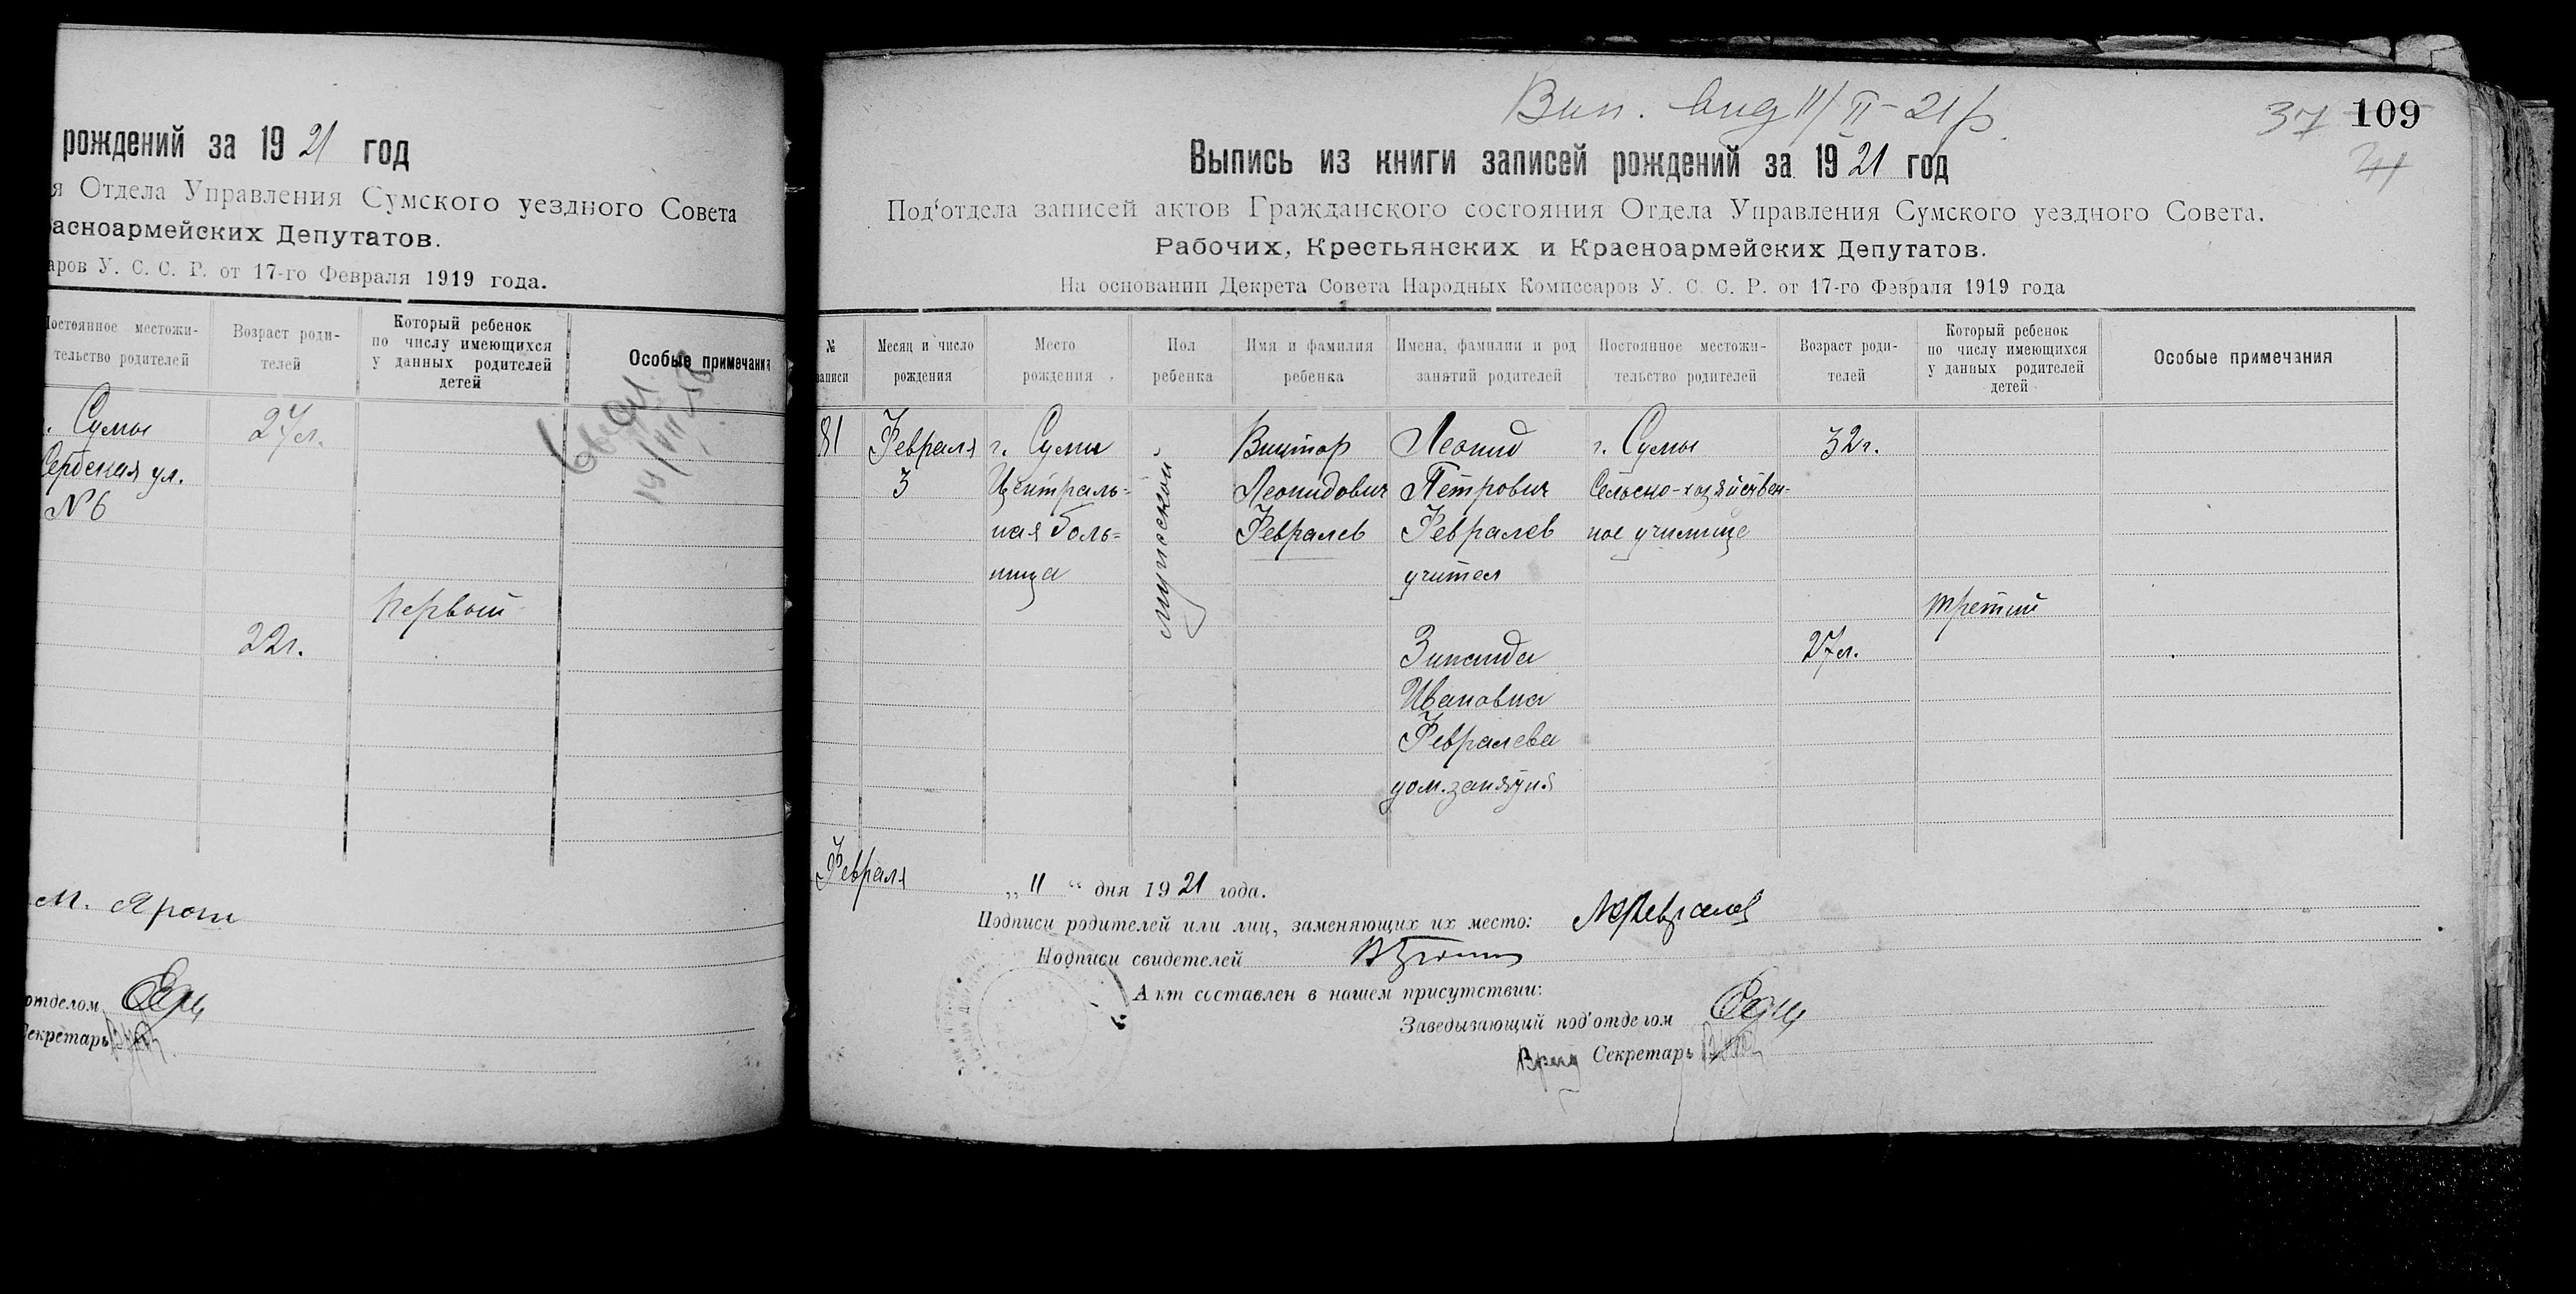 рождений за 1921 год
я Отдела Управления Сумского уездного Совета
асноармейских Депутатов.
аров У. С. С. Р. от 17-го Февраля 1919 года.
остоянное местожи-
тельство родителей
Возраст роди-
телей
Который ребенок
по числу имеющихся
у данных родителей
детей
Особые примечания
. Сумы
ул.
№ 6
27л.
первый
22г.
М. Ярош
отделом
екретарь
37 109
Вип. вид 11/II-21р.
Выпись из книги записей рождений за 1921 год
Под‘отдела записей актов Гражданского состояния Отдела Управления Сумского уездного Совета.
Рабочих, Крестьянских и Красноармейских Депутатов.
На основании Декрета Совета Народных Комиссаров У. С. С. Р. от 17-го Февраля 1919 года
№
записи
Месяц и число
рождения
Место
рождения
Пол
ребенка
Имя и фамилия
ребенка
Имена, фамилии и род
занятий родителей
Постоянное местожи-
тельство родителей
Возраст роди-
телей
Который ребенок
по числу имеющихся
у данных родителей
детей
Особые примечания
81
Февраля
3
г. Сумы
Централь=
ная боль=
ница
мужской
Виктор
Леонидович
Февралев
Леонид
Петрович
Февралев
учител
Зинаида
Ивановна
Февралева
дом. занятия
г. Сумы
Сельско-хозяйствен-
ное училище
32г.
27л.
третий
Февраля „ 11 “ дня 1921 года.
Подписи родителей или лиц, заменяющих их место: ЛФевралев
Подписи свидетелей
Акт составлен в нашем присутствии:
Заведывающий под‘отделом
Врид Секретарь